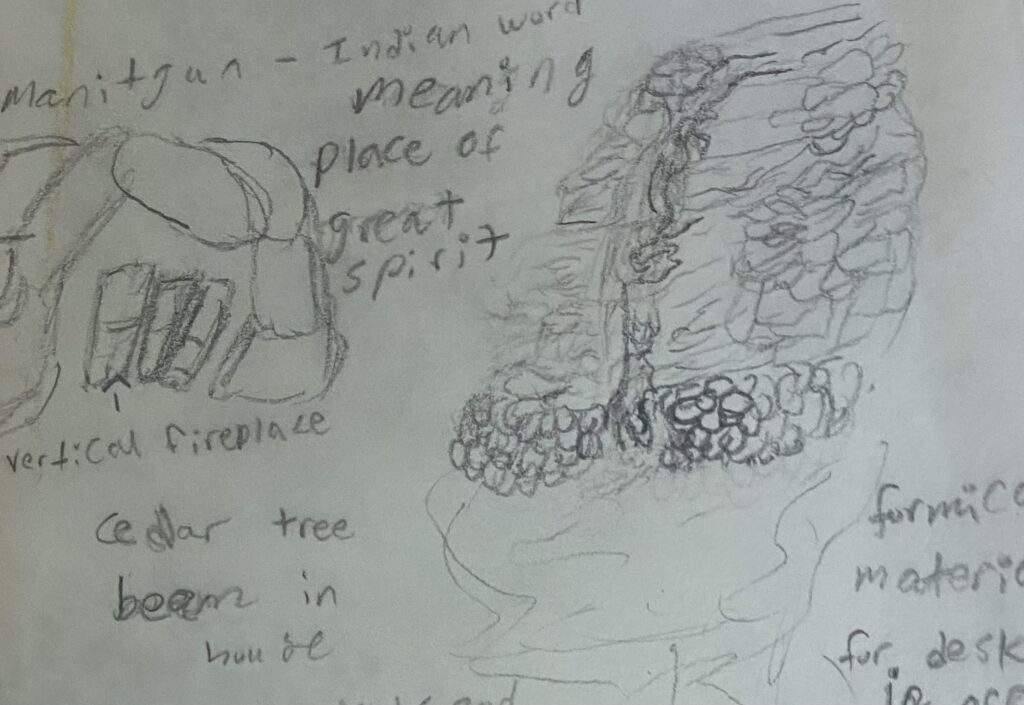 Manitgun - Indian word
meaning
place of
great
spirit
vertical fireplace
cedar tree
beam in
house
formica
materia
for desk